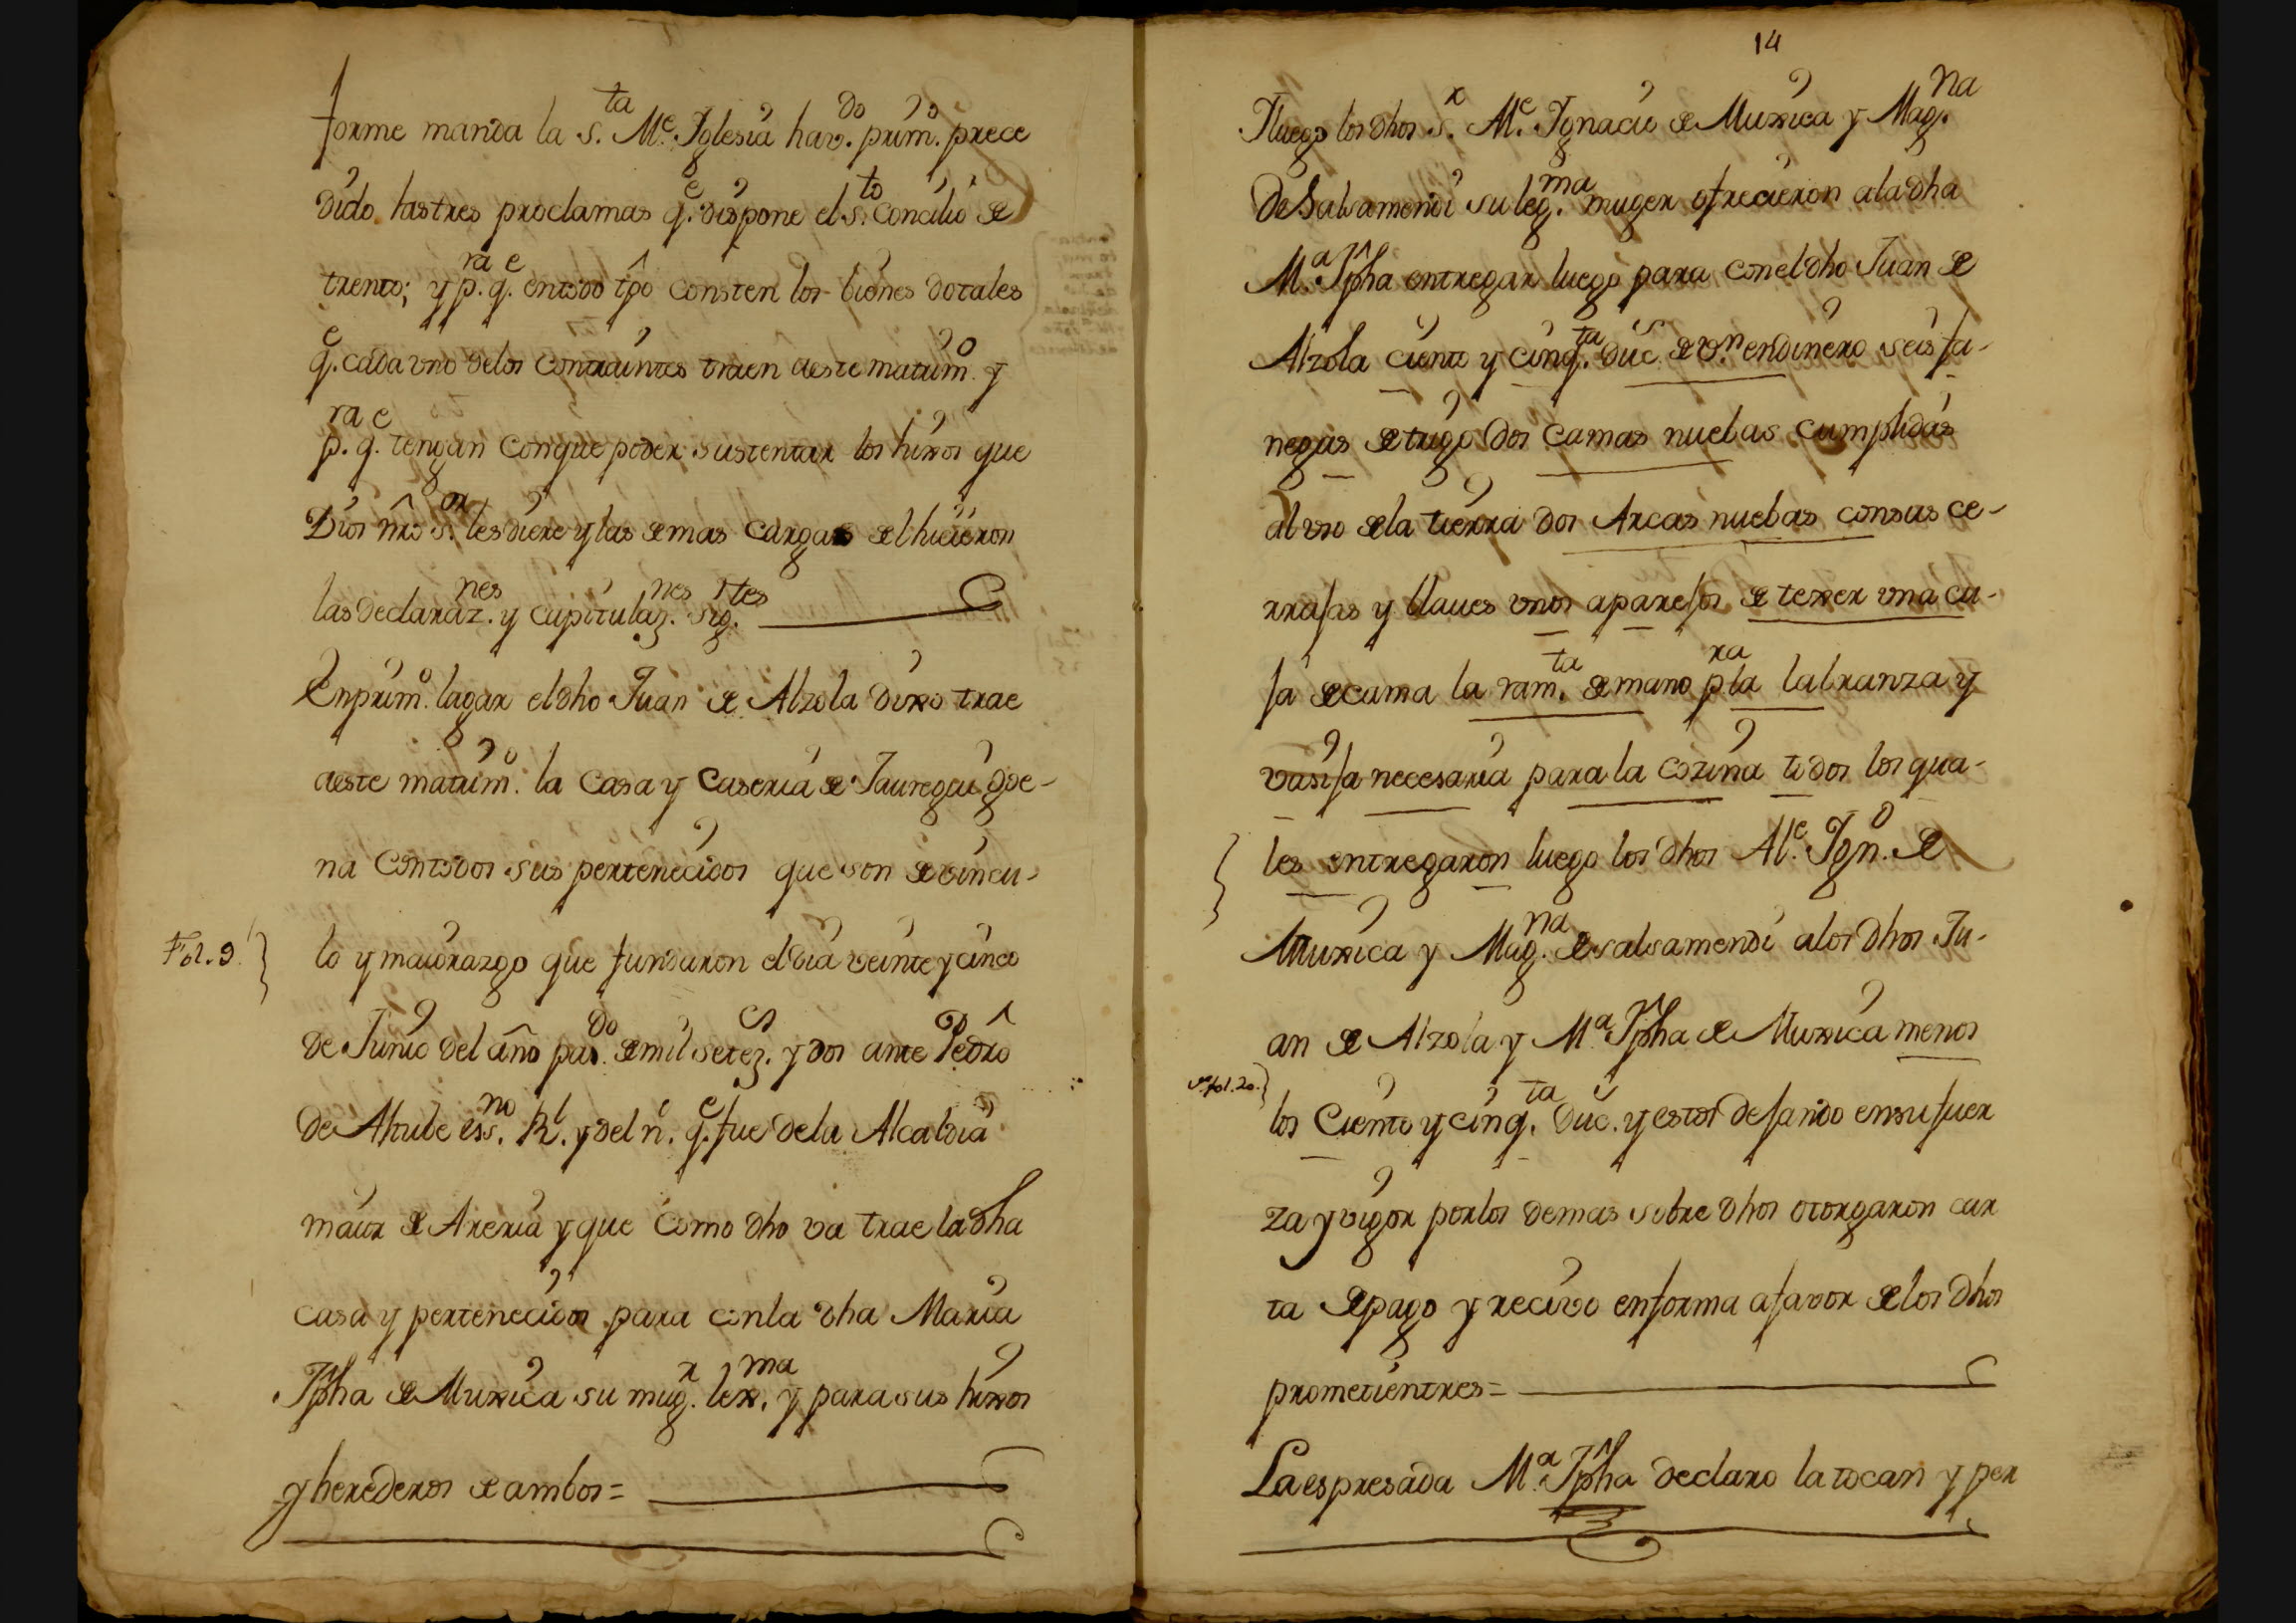 forme manda la s.ta Me. Iglesia hav.do prim.o prece
dido. las tres proclamas q.e dispone el s.to Concilio de
trento; y p.ra q.e entodo tpo consten los bienes dotales
q.e cada vno delos contraintes traen aeste matrim.o y
p.ra q.e tengan conque poder sustentar los hixos que
Dios nro s.or les diere y las demas cargas del hicieron
las declaraz.nes y capitulaz.nes sig.tes
Enprim.o lugar el dho Juan de Alzola dixo trae
aeste matrim.o la Casa y Caseria de Jauregui goe-
na Contodos sus pertenecidos que son de vincu-
Fol. 9
lo y maiorazgo que fundaron el dia veinte y cinco
de Junio del año pas.do de mil setez.s y dos ante Pedro
de Altube ess.no Rl. y del n. q.e fue dela Alcaldia
maior de Areria y que Como dho va trae la dha
casa y pertenecidos para conla dha Maria
Jpha de Muxica su mug.r lex.ma y para sus hixos
y herederos de ambos=
14
Yluego los dhos s.r Me. Ignacio de Muxica y Mag.na
de Salsamendi su leg.ma muger ofrecieron ala dha
M.a Jpha entregar luego para conel dho Juan de
Alzola ciento y cinq.ta duc.s de v.n endinero seis fa-
negas de trigo dos camas nuebas cumplidas
al vso dela tierra dos Arcas nuebas consus ce-
rrajas y llaues vnos aparejos de texer vna ca-
ja de cama la ram.ta de mano p.ra la labranza y
vasija necesaria para la cozina todos los qua-
les entregaron luego los dhos Me. Ign.o de
Muxica y Mag.na de salsamendi alos dhos Ju-
an de Alzola y M.a Jpha de Muxica menos
fol. 20.
los Ciento y cinq.ta duc.s y estos dejando ensu fuer
za y vigor porlos demas sobre dhos otorgaron car
ta de pago y recivo enforma afavor delos dhos
prometientes=
La espresada M.a Jpha declaro la tocan y per